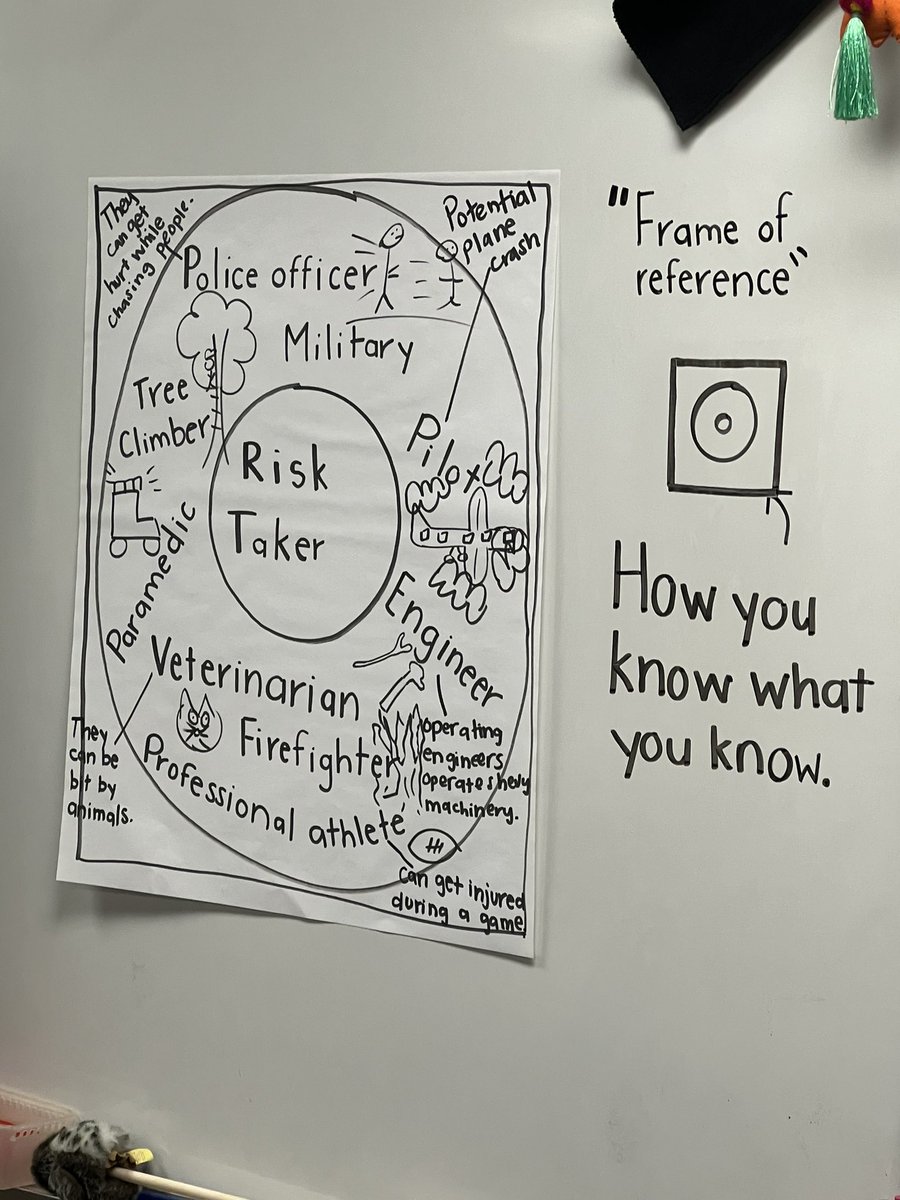 They
can get
hurt while
chasing people.
Potential
plane
crash
Police officer
Military
Tree
Climber
Pilot
Risk
Taker
Paramedic
Engineer
operating
engineers
operate shedy
machinery.
Veterinarian
They
can be
bit by
animals.
Firefighter
Professional athlete
can get injured
during a game
"Frame of
reference"
How you
know what
you know.